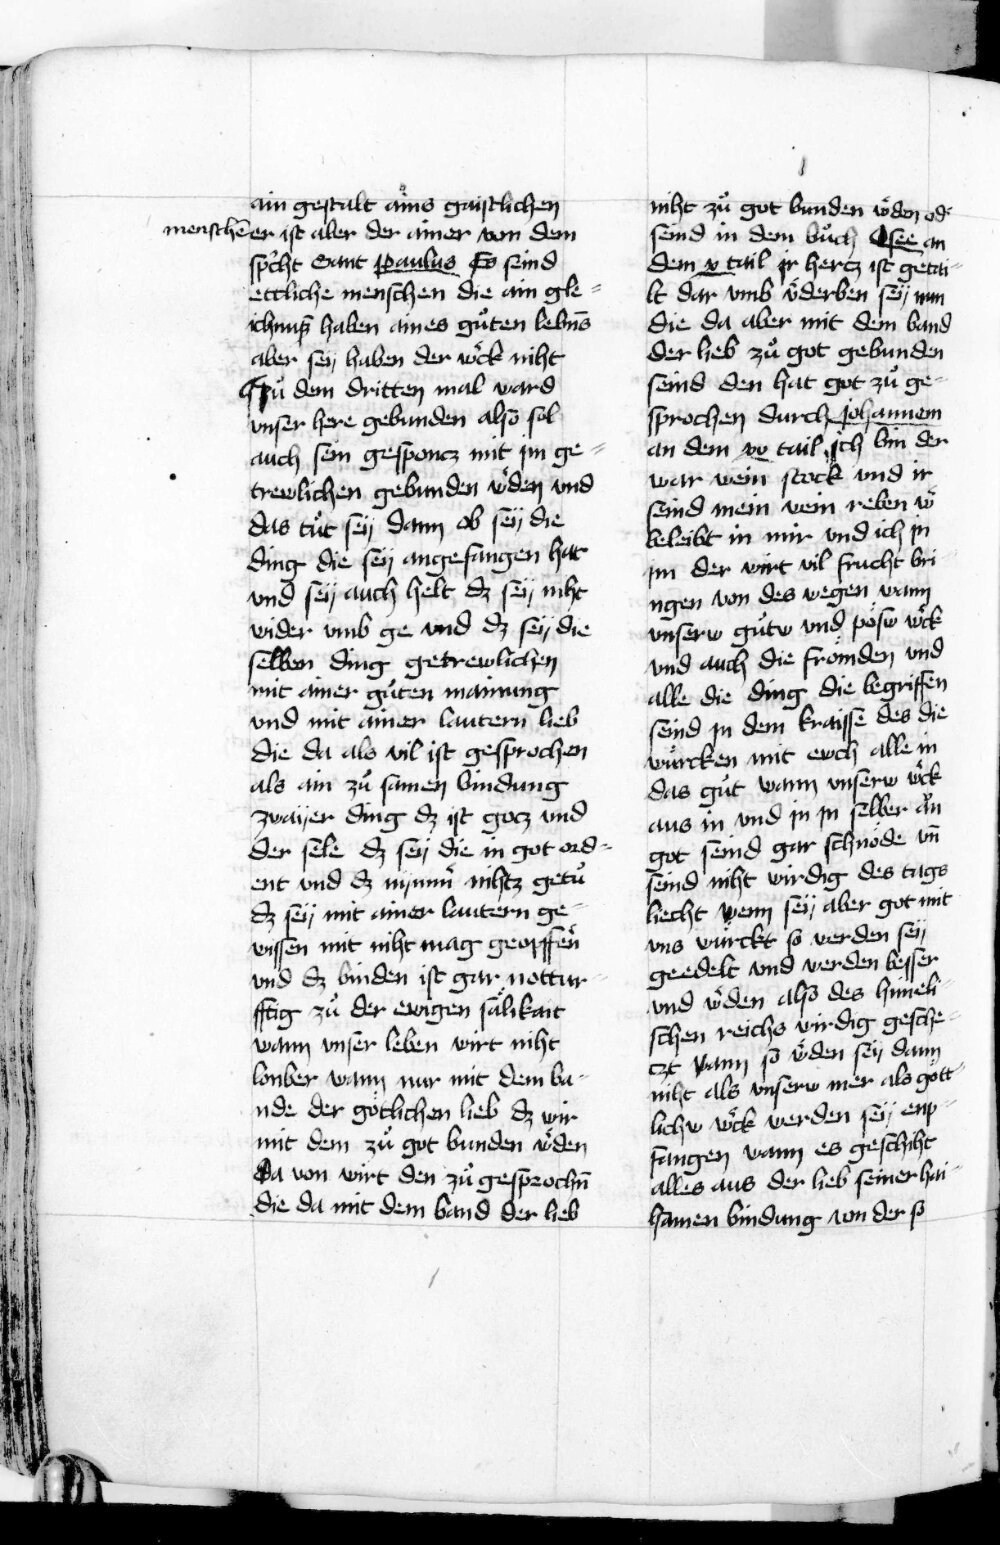 ain gestalt ains gaistlichen
menschen er ist aber der ainer von dem
spricht Sant Paulus Es seind
ettliche menschen die ain gle=
ichnuß haben aines gůten lebns
aber seÿ haben der wͤck niht
Zů dem dritten mal ward
vnser here gebunden also sol
auch sein gesponcz mit im ge=
trewlichen gebunden wͤden vnd
das tůt seÿ dann ob seÿ die
ding die seÿ angefangen hat
vnd seÿ auch helt dz seÿ niht
wider vmb ge vnd dz seÿ die
selben ding getrewlichen
mit ainer gůten mainung
vnd mit ainer lautern lieb
die da als vil ist gesprochen
als ain zů samen bindung
zwaÿer ding dz ist gocz vnd
der sele dz seÿ die in got ord=
ent vnd dz nÿmmͤ nihtz getů
dz seÿ mit ainer lautern ge=
wissen mit niht mag geopffen
vnd dz binden ist gar nottur=
fftig zů der ewigen sälikait
wann vnser leben wirt niht
lonber wann nur mit dem ba=
nde der götlichen lieb dz wir
mit dem zů got bunden wͤden
Da von wirt den zů gesprochn̄
die da mit dem band der lieb
niht zů got bunden wͤden od
seind in dem bůch Osee an
dem x tail ir hercz ist getai=
lt dar vmb vͤderben seÿ nun
die da aber mit dem band
der lieb zů got gebunden
seind den hat got zů ge=
sprochen durch Johannem
an dem xv tail Ich bin der
war wein stock vnd ir
seind mein wein reben wͤ
beleibt in mir vnd ich in
im der wirt vil frucht bri=
ngen von des wegen wann
vnserw gůtw vnd pösw wͤck
vnd auch die frömden vnd
alle die ding die begriffen
seind in dem kraisse des die
würcken mit ewch alle in
das gůt wann vnserw wͤck
aus in vnd in in selber än
got seind gar schnöde vn̄
seind niht wirdig des tags
liecht wenn seÿ aber got mit
vns würckt so werden seÿ
geedelt vnd werden besser
vnd wͤden also des himeli=
schen reichs wirdig gesche=
czt wann so wͤden seÿ dann
niht als vnserw mer als gött=
lichw wͤck werden seÿ enp=
fangen wann es geschiht
alles aus der lieb seiner hai=
hamen bindung von der so